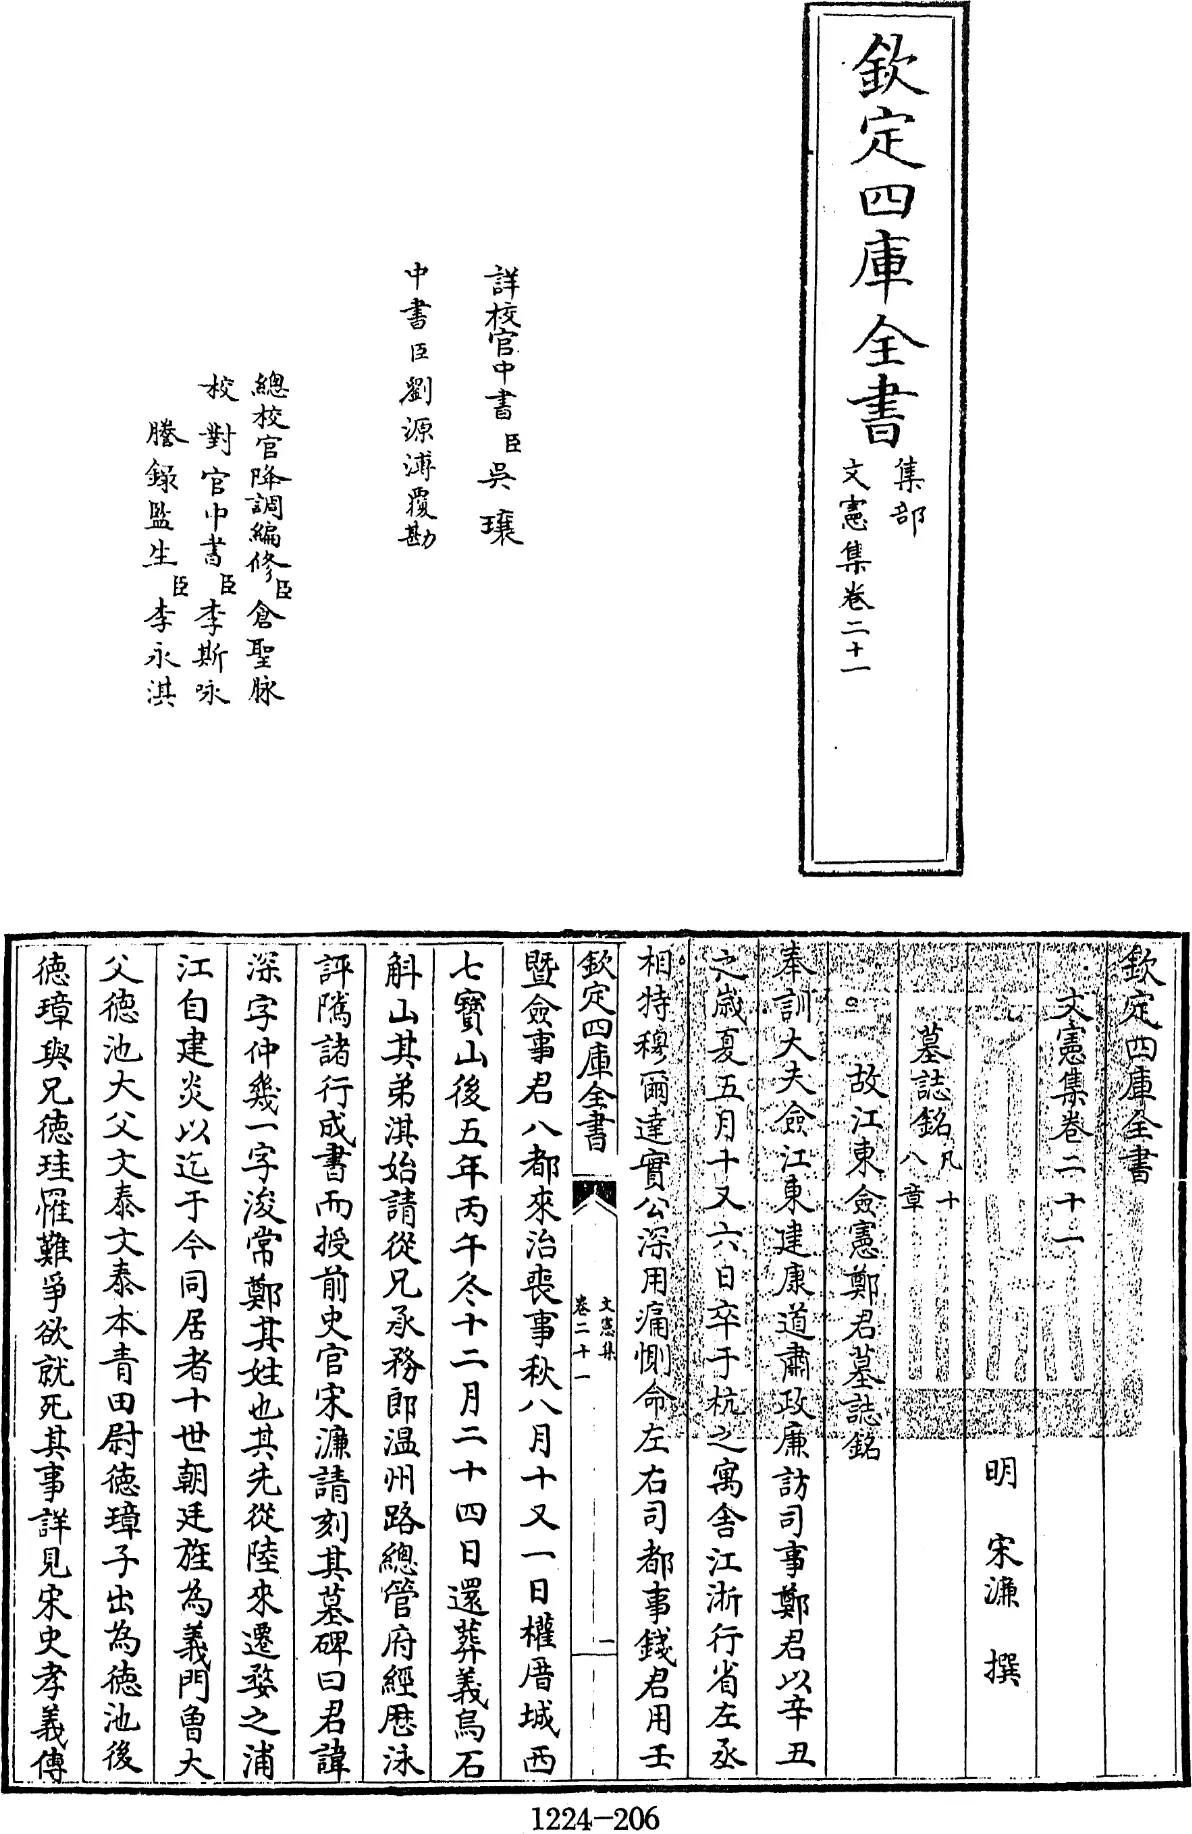 欽定四庫全書
集部
文憲集卷二十一
詳校官中書臣吳璥
中書臣劉源溥覆勘
總校官降調編修臣倉聖脉
校對官中書臣李斯咏
謄錄監生臣李永淇
欽定四庫全書
文憲集卷二十一
明 宋濂 撰
墓誌銘凡十八章
故江東僉憲鄭君墓誌銘
奉訓大夫僉江東建康道肅政廉訪司事鄭君以辛丑
之歲夏五月十又六日卒于杭之寓舍江浙行省左丞
相特穆爾達實公深用痛惻命左右司都事錢君用壬
欽定四庫全書
文憲集
卷二十一
一
暨僉事君八都來治喪事秋八月十又一日權厝城西
七寶山後五年丙午冬十二月二十四日還葬義烏石
斛山其弟淇始請從兄承務郎溫州路總管府經歷泳
評隲諸行成書而授前史官宋濂請刻其墓碑曰君諱
深字仲幾一字浚常鄭其姓也其先從陸來遷婺之浦
江自建炎以迄于今同居者十世朝廷旌為義門魯大
父德池大父文泰文泰本青田尉德璋子出為德池後
德璋與兄德珪罹難爭欲就死其事詳見宋史孝義傳
1224-206